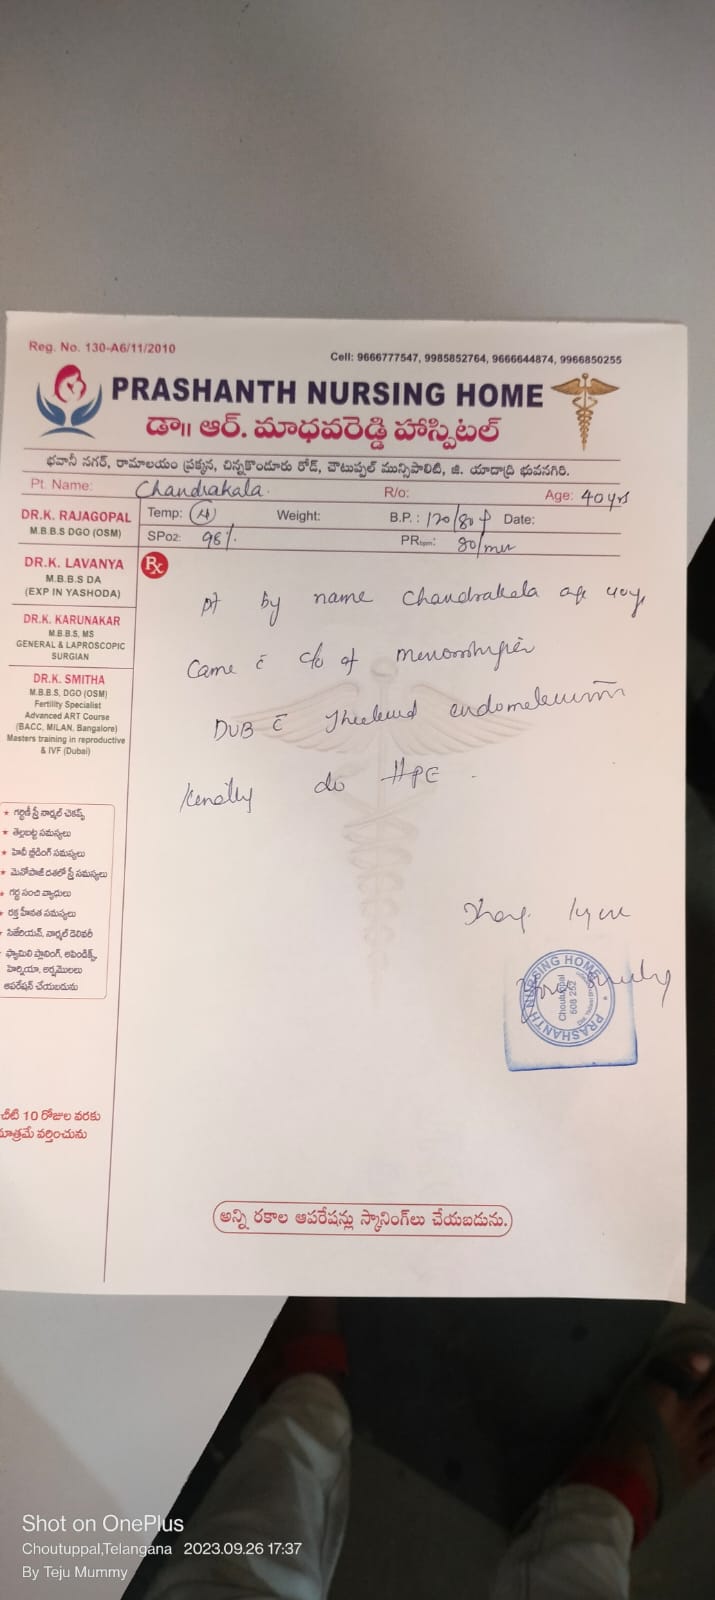 Reg. No. 130-A6/11/2010
Cell: 9666777547, 9985852764, 9666644874, 9966850255
PRASHANTH NURSING HOME
డా॥ ఆర్. మాధవరెడ్డి హాస్పిటల్
భవానీ నగర్, రామాలయం ప్రక్కన, చిన్నకొండూరు రోడ్, చౌటుప్పల్ మున్సిపాలిటి, జి. యాదాద్రి భువనగిరి.
Pt. Name: Chandrakala. R/o: Age: 40 yrs
Temp: Weight: B.P.: 120/80 Date:
SPo2: 98% PRbpm: 80/min
DR.K. RAJAGOPAL
M.B.B.S DGO (OSM)
DR.K. LAVANYA
M.B.B.S DA
(EXP IN YASHODA)
DR.K. KARUNAKAR
M.B.B.S, MS
GENERAL & LAPROSCOPIC
SURGIAN
DR.K. SMITHA
M.B.B.S, DGO (OSM)
Fertility Specialist
Advanced ART Course
(BACC, MILAN, Bangalore)
Masters training in reproductive
& IVF (Dubai)
★ గర్భిణీ స్త్రీ నార్మల్ చెకప్స్
★ తెల్లబట్ట సమస్యలు
★ హెవీ బ్లీడింగ్ సమస్యలు
★ మెనోపాజ్ దశలో స్త్రీ సమస్యలు
★ గర్భ సంచి వ్యాధులు
★ రక్త హీనత సమస్యలు
సిజేరియన్, నార్మల్ డెలివరీ
ఫ్యామిలి ప్లానింగ్, అపెండిక్స్,
హెర్నియా, అర్శమొలలు
ఆపరేషన్ చేయబడును
చీటి 10 రోజుల వరకు
మాత్రమే వర్తించును
Rx
pt by name Chandrakala age 40y
Came c̄ c/o of
DUB c̄
do HPE
PRASHANTH NURSING HOME
Choutuppal
508 252
అన్ని రకాల ఆపరేషన్లు స్కానింగ్‌లు చేయబడును.
Shot on OnePlus
Choutuppal,Telangana 2023.09.26 17:37
By Teju Mummy